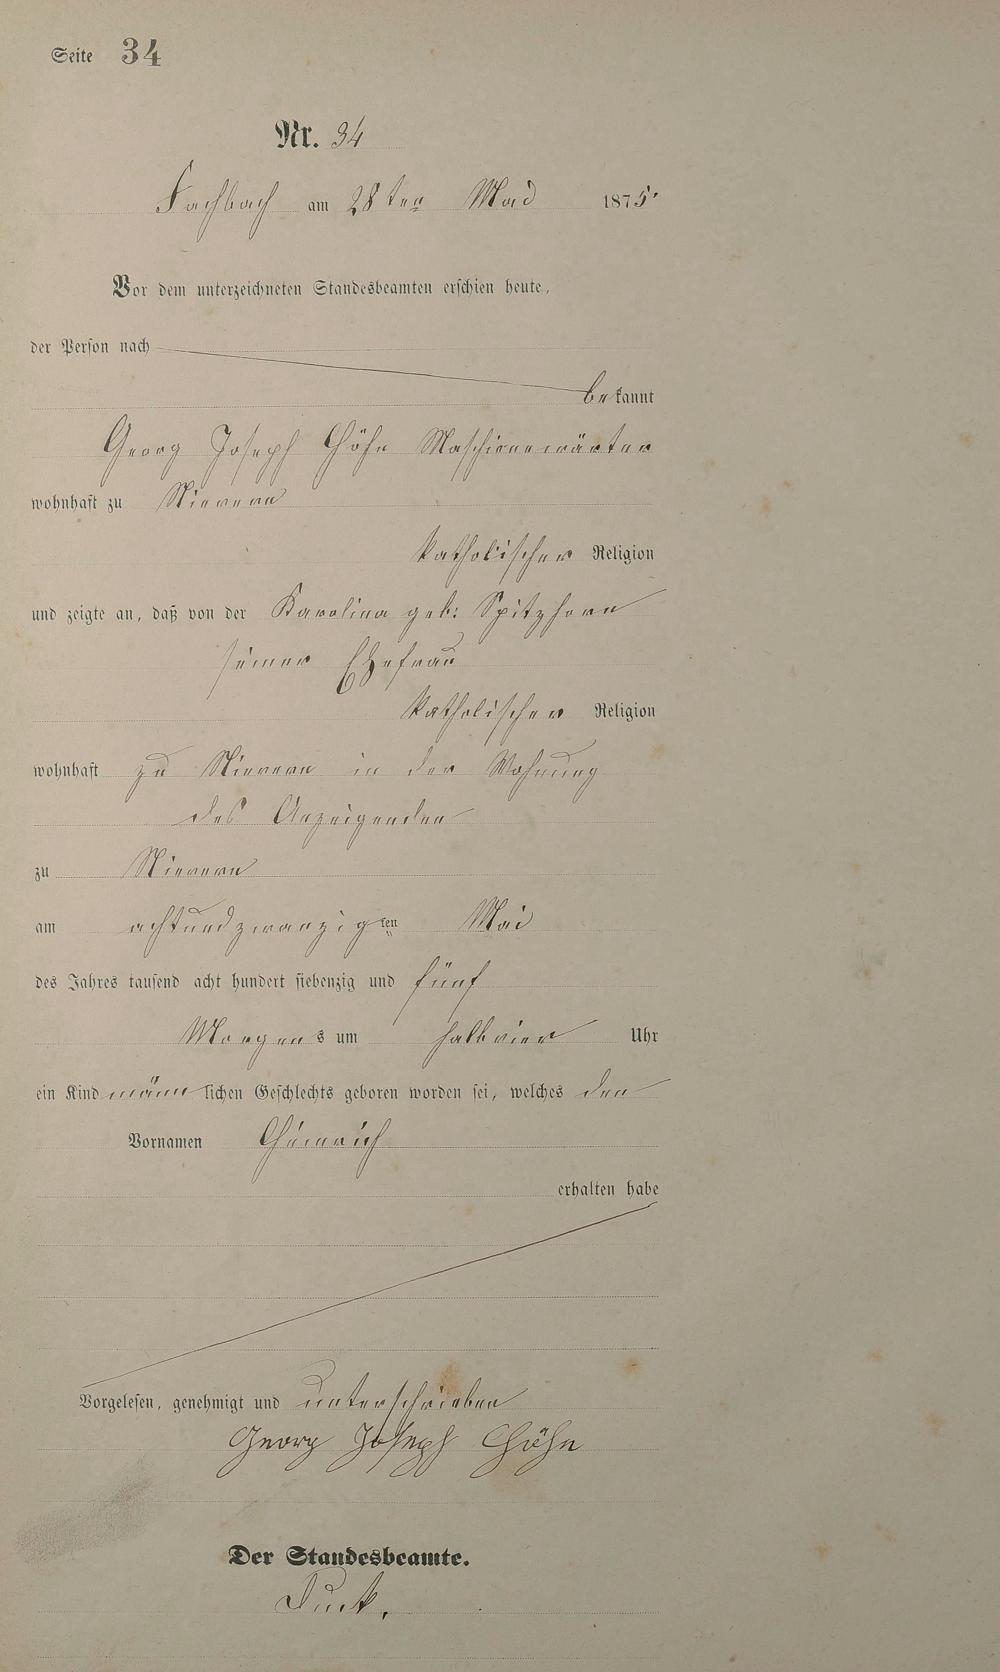 Seite 34
Nr. 34
Fachbach am 28ten Mai 1875.
Vor dem unterzeichneten Standesbeamten erschien heute,
der Person nach
bekannt
Georg Joseph Höhn Maschienewärter
wohnhaft zu Nievern
katholischer Religion
und zeigte an, daß von der Karolina geb: Spitzhorn
seiner Ehefrau
katholischer Religion
wohnhaft zu Nievern in der Wohnung
des Anzeigenden
zu Nievern
am achtundzwanzigten Mai
des Jahres tausend acht hundert siebenzig und fünf
Morgens um halb vier Uhr
ein Kind männlichen Geschlechts geboren worden sei, welches den
Vornamen Heinrich
erhalten habe
Vorgelesen, genehmigt und unterschrieben
Georg Joseph Höhn
Der Standesbeamte.